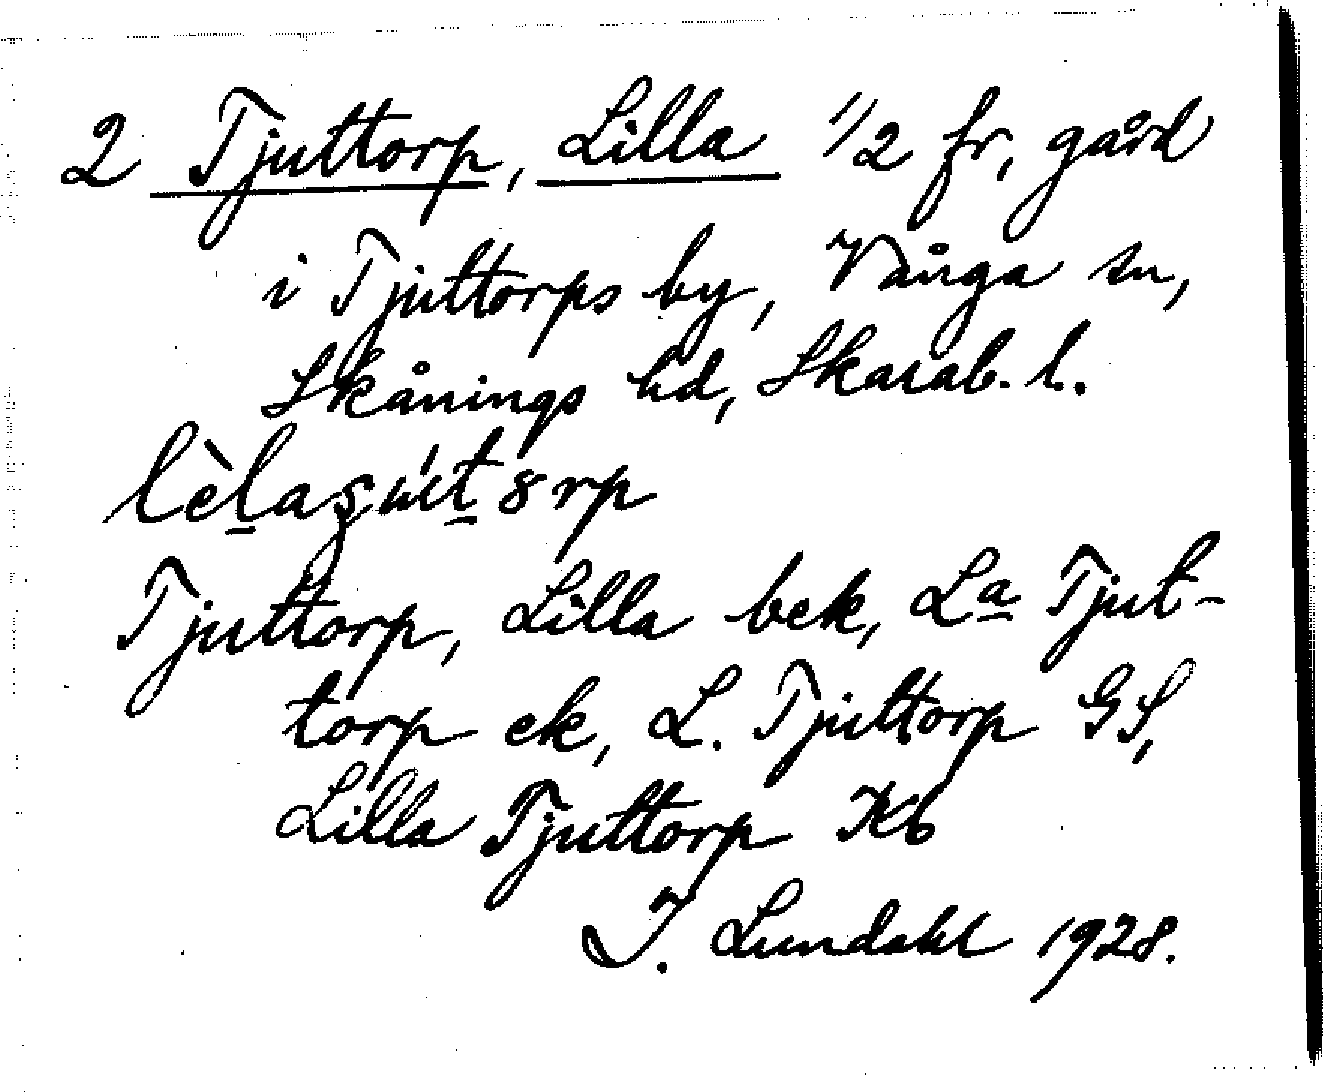 2 Tjuttorp, Lilla 1/2 fr, gård
i Tjuttorps by, Vånga sn,
Skånings hd, Skarab. l.
Tjuttorp, Lilla bek, La Tjut-
torp ek, L. Tjuttorp GS,
Lilla Tjuttorp Kb
I. Lundahl 1928.